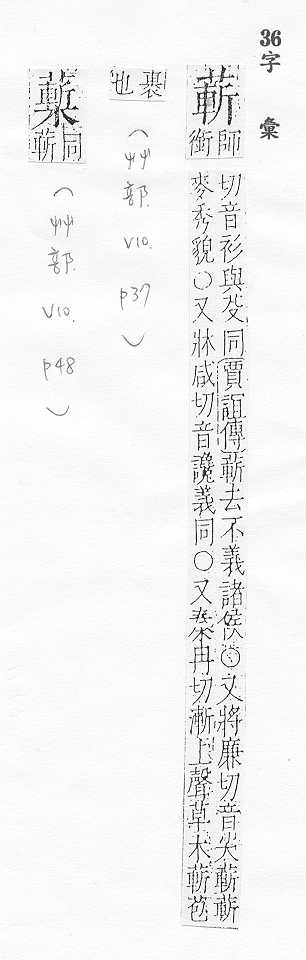 36字彙
蔪師銜
切音衫與芟同賈誼傳蔪去不義諸侯○又將廉切音尖蔪蔪
麥秀貌○又牀咸切音讒義同○又秦冉切漸上聲草木蔪苞
裹也
(艸部 V10. P37)
同蔪
(艸部 V10. P48)